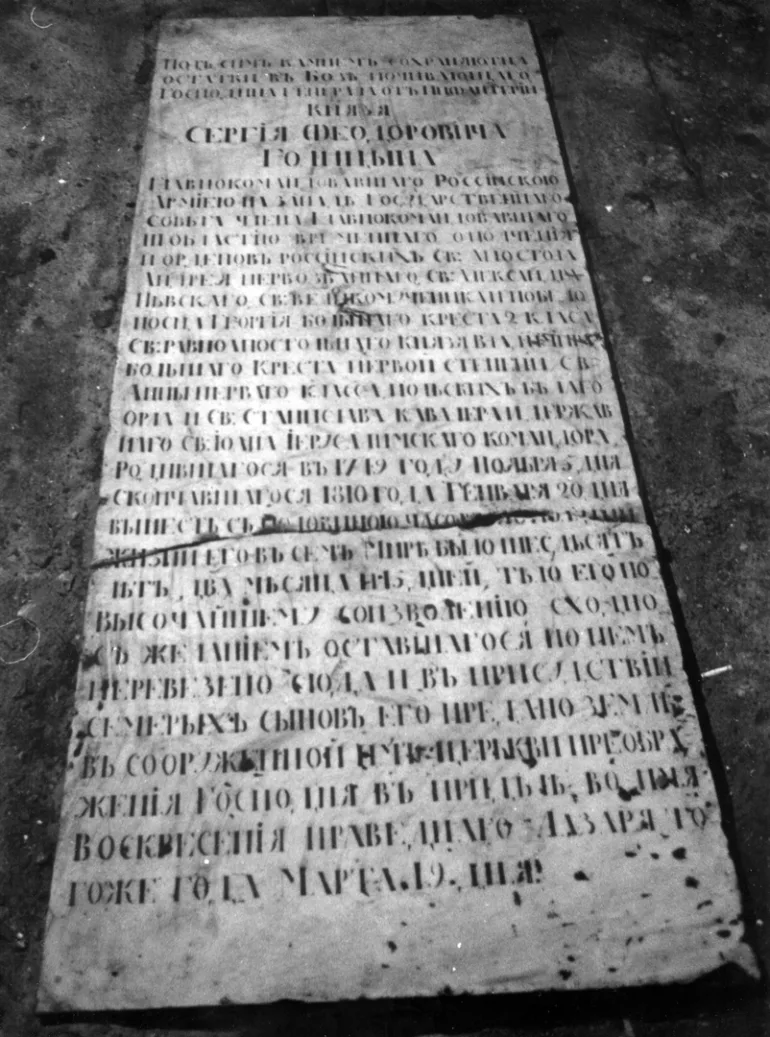 ПОДЪ СИМЪ КАМНЕМЪ СОХРАНЯЮТСЯ
ОСТАТКИ ВЪ БОЗѢ ПОЧИВАЮЩАГО
ГОСПОДИНА ГЕНЕРАЛА ОТЪ ИНФАНТЕРІИ
КНЯЗЯ
СЕРГІЯ ФЕОДОРОВИЧА
ГОЛИЦЫНА
ГЛАВНОКОМАНДОВАВШАГО РОССІЙСКОЮ
АРМІЕЮ НА ЗАПАДѢ ГОСУДАРСТВЕННАГО
СОВѢТА ЧЛЕНА ГЛАВНОКОМАНДОВАВШАГО
ОБЛАСТІЮ ВРЕМЕННАГО ОПОЛЧЕНІЯ
И ОРДЕНОВЪ РОССІЙСКИХЪ СВ: АПОСТОЛА
АНДРЕЯ ПЕРВОЗВАННАГО, СВ: АЛЕКСАНДРА
НЕВСКАГО, СВ: ВЕЛИКОМУЧЕНИКА И ПОБѢДО
НОСЦА ГЕОРГІЯ БОЛЬШАГО КРЕСТА 2 КЛАСА
СВ: РАВНОАПОСТОЛЬНАГО КНЯЗЯ ВЛАДИМИРА
БОЛЬШАГО КРЕСТА ПЕРВОЙ СТЕПЕНИ, СВ:
АННЫ ПЕРВАГО КЛАССА, ПОЛЬСКИХЪ БѢЛАГО
ОРЛА И СВ: СТАНИСЛАВА КАВАЛЕРА И ДЕРЖАВ
НАГО СВ: ІОАНА ІЕРУСАЛИМСКАГО КОМАНДОРА,
РОДИВШАГОСЯ ВЪ 1749 ГОДУ НОЯБРЯ 5 ДНЯ
СКОНЧАВШАГОСЯ 1810 ГОДА ГЕНВАРЯ 20 ДНЯ
ВЪ ШЕСТЬ СЪ ПОЛОВИНОЮ ЧАСОВЪ
ЖИЗНИ ЕГО ВЪ СЕМЪ МИРѢ БЫЛО ШЕСДЬСЯТЪ
ЛѢТЪ, ДВА МѢСЯЦА И 15 ДНЕЙ, ТѢЛО ЕГО ПО
ВЫСОЧАЙШЕМУ СОИЗВОЛЕНІЮ СХОДНО
СЪ ЖЕЛАНІЕМЪ ОСТАВШАГОСЯ ПО НЕМЪ
ПЕРЕВЕЗЕНО СЮДА И ВЪ ПРИСУДСТВІИ
СЕМЕРЫХЪ СЫНОВЪ ЕГО ПРЕДАНО ЗЕМЛѢ
ВЪ СООРУЖЕННОЙ ИМЪ ЦЕРЬКВИ ПРЕОБРА
ЖЕНІЯ ГОСПОДНЯ ВЪ ПРИДѢЛѢ ВО ИМЯ
ВОСКРЕСЕНІЯ ПРАВЕДНАГО ЛАЗАРЯ ТО
ГОЖЕ ГОДА МАРТА 19 ДНЯ!